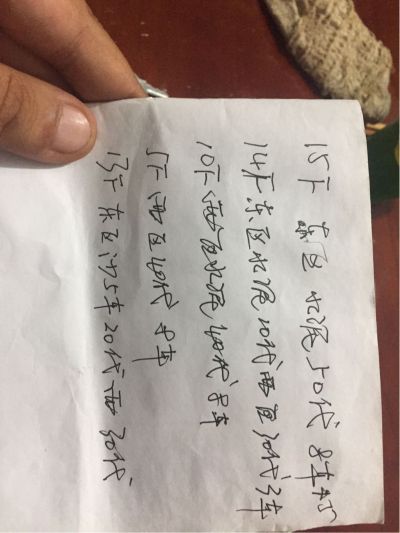 15下 东区水泥50代 8车
14下 东区水泥10代西区30代3车
10下西区水泥40代8车
5下西区40代8车
13下东区沙5车20代西30代